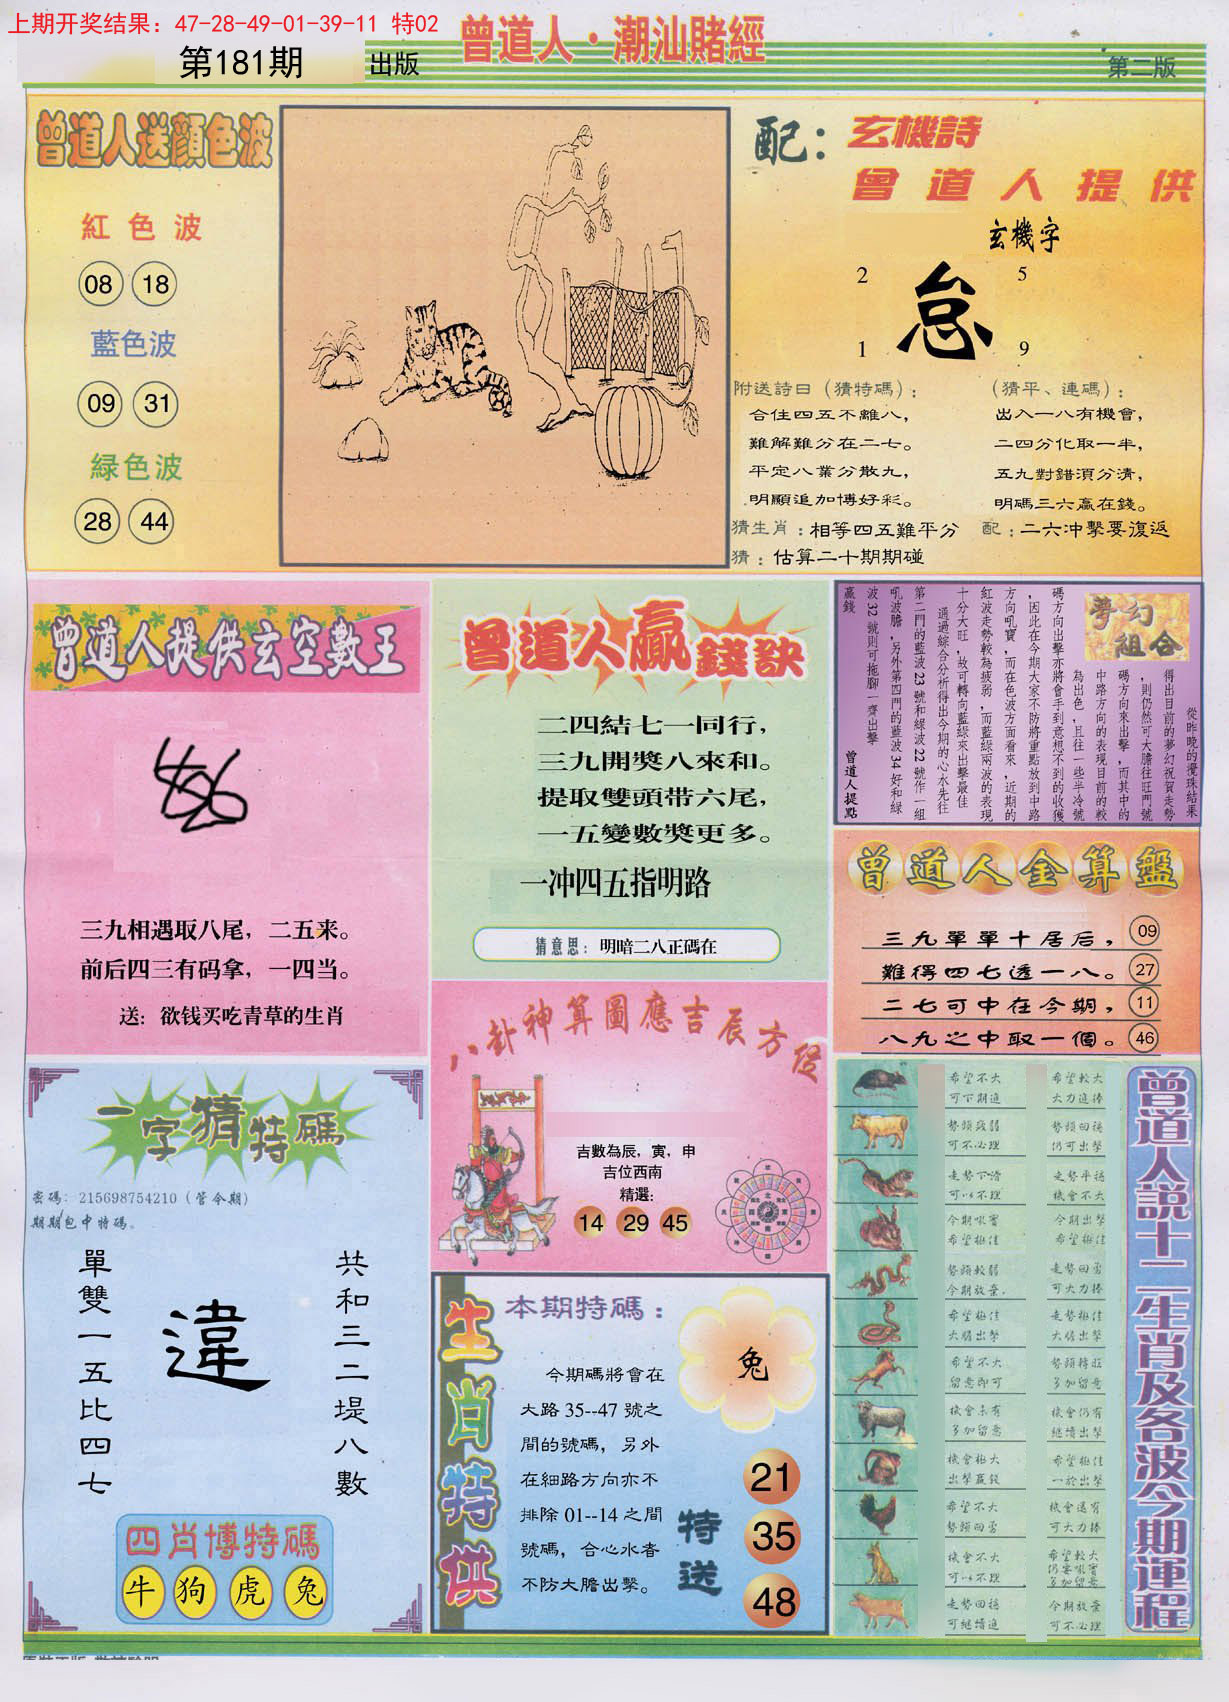 上期开奖结果：47-28-49-01-39-11 特02
第181期 出版
曾道人·潮汕賭經
第二版
曾道人送顔色波
紅色波
08 18
藍色波
09 31
緑色波
28 44
配：玄機詩
曾道人提供
玄機字
2 5
怠
1 9
附送詩曰（猜特碼）：
合住四五不離八，
難解難分在二七。
平定八業分散九，
明顯追加博好彩。
（猜平、連碼）：
出入一八有機會，
二四分化取一半，
五九對錯須分清，
明碼三六贏在錢。
猜生肖：相等四五難平分
配：二六冲擊要復返
猜：估算二十期期碰
曾道人提供玄空數王
三九相遇取八尾，二五来。
前后四三有码拿，一四当。
送：欲钱买吃青草的生肖
曾道人贏錢訣
二四結七一同行，
三九開獎八來和。
提取雙頭带六尾，
一五變數獎更多。
一冲四五指明路
猜意思：明暗二八正碼在
夢幻組合
從昨晚的攪珠結果
得出目前的夢幻祝賀走勢
，則仍然可大膽往旺門號
碼方向來出擊，而其中的
中路方向的表現目前的較
為出色，且往一些半冷號
碼方向出擊亦將會手到意想不到的收獲
，因此在今期大家不防將重點放到中路
方向吼寶，而在色波方面看來，近期的
紅波走勢較為疲弱，而藍綠兩波的表現
十分大旺，故可轉向藍綠來出擊最佳
通過綜合分析得出今期的心水先往
第二門的藍波23號和綠波22號作一組
吼波膽，另外第四門的藍波34好和綠
波32號則可拖腳一齊出擊
贏錢
曾道人提點
曾道人金算盤
三九單單十居后， 09
難得四七透一八。 27
二七可中在今期， 11
八九之中取一個。 46
八卦神算圖應吉辰方位
吉數為辰，寅，申
吉位西南
精選：
14 29 45
一字猜特碼
密碼：215698754210（管令期）
期期包中特碼。
單雙一五比四七
違
共和三二堤八數
四肖博特碼
牛 狗 虎 兔
生肖特供
本期特碼：
兔
今期碼將會在
大路35--47號之
間的號碼，另外
在細路方向亦不
排除01--14之間
號碼，合心水者
不防大膽出擊。
特送
21
35
48
曾道人説十二生肖及各波今期運程
希望不大 希望較大
可下期進 大力進捧
勢頭疲弱 勢頭回穩
可不必理 仍可出擊
走勢下滑 走勢平穩
可以不理 機會不大
今期吼寶 今期出擊
希望極佳 希望極佳
勢頭較弱 走勢回勇
今期放棄. 可大力捧
希望極佳 走勢極佳
大膽出擊 大膽出擊
希望不大 勢頭轉旺
留意即可 多加留意
機會未有 機會仍有
多加留意 繼續出擊
機會極大 希望極佳
出擊贏錢 一於出擊
希望不大 機會還有
勢頭回勇 可大力捧
機會不大 希望較大
可以不理 仍要吼寶
多加留意
走勢回穩 今期放棄
可繼續進 可不必理